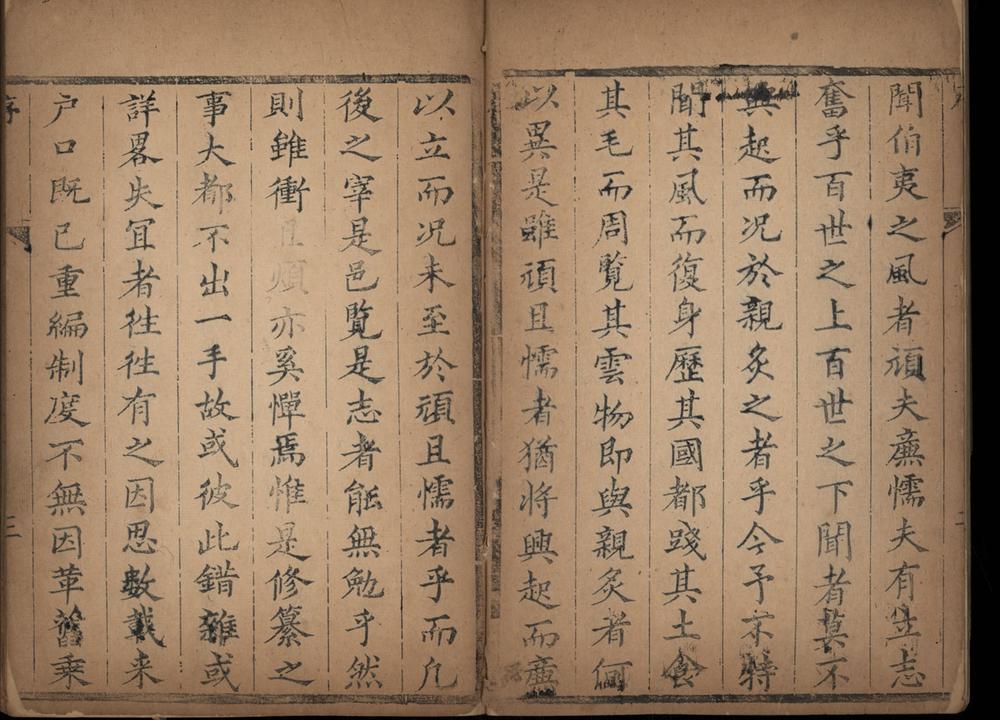 聞伯夷之風者頑夫廉懦夫有立志
奮乎百世之上百世之下聞者莫不
興起而况於親炙之者乎今予不特
聞其風而復身歷其國都踐其土食
其毛而周覧其雲物即與親炙者何
以異是雖頑且懦者猶將興起而廉
以立而况未至於頑且懦者乎而凡
後之宰是邑覧是志者能無勉乎然
則雖衝且煩亦奚憚焉惟是修纂之
事大都不出一手故或彼此錯雜或
詳畧失宜者徃徃有之因思數載来
户口既已重編制度不無因革舊乘